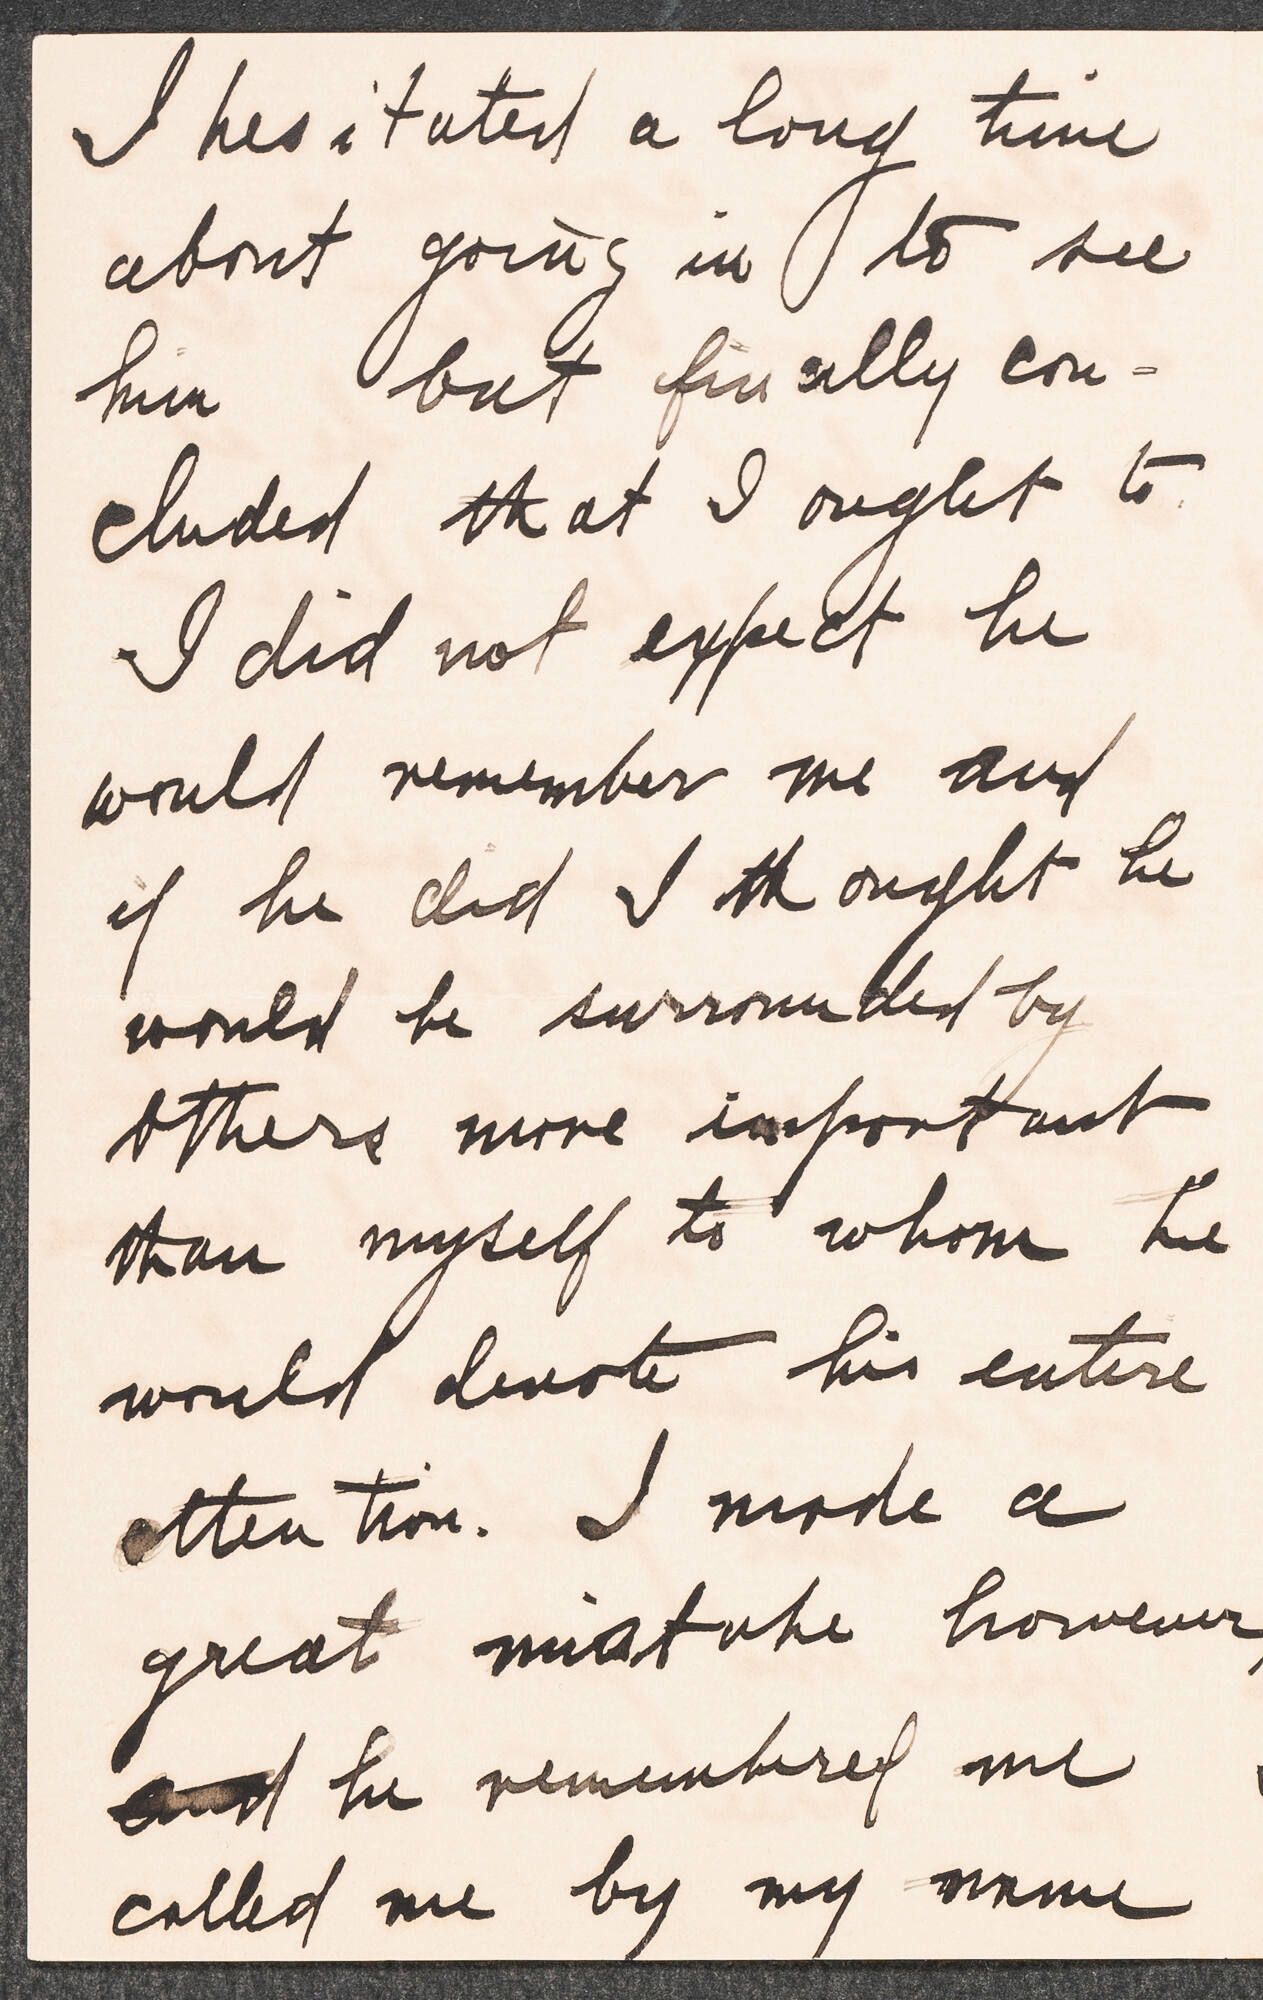 I hesitated a long time
about going in to see
him but finally con-
cluded that I ought to
I did not expect he
would remember me and
if he did I thought he
would be surrounded by
others more important
than myself to whom he
would devote his entire
attention. I made a
great mistake however,
and he remembered me
called me by my name